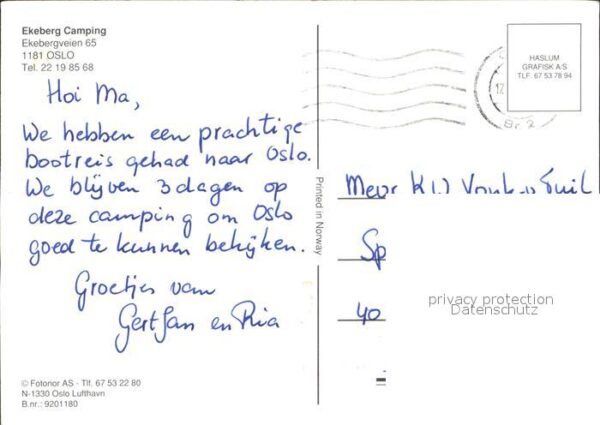 Ekeberg Camping
Ekebergveien 65
1181 OSLO
Tel. 22 19 85 68
Hoi Ma,
We hebben een prachtige
bootreis gehad naar Oslo.
We blijven 3 dagen op
deze camping om Oslo
goed te kunnen bekijken.
Groetjes van
Gert Jan en Ria
© Fotonor AS - Tlf. 67 53 22 80
N-1330 Oslo Lufthavn
B.nr.: 9201180
Printed in Norway
HASLUM
GRAFISK A/S
TLF. 67 53 78 94
Mevr
Sp
40
privacy protection
Datenschutz